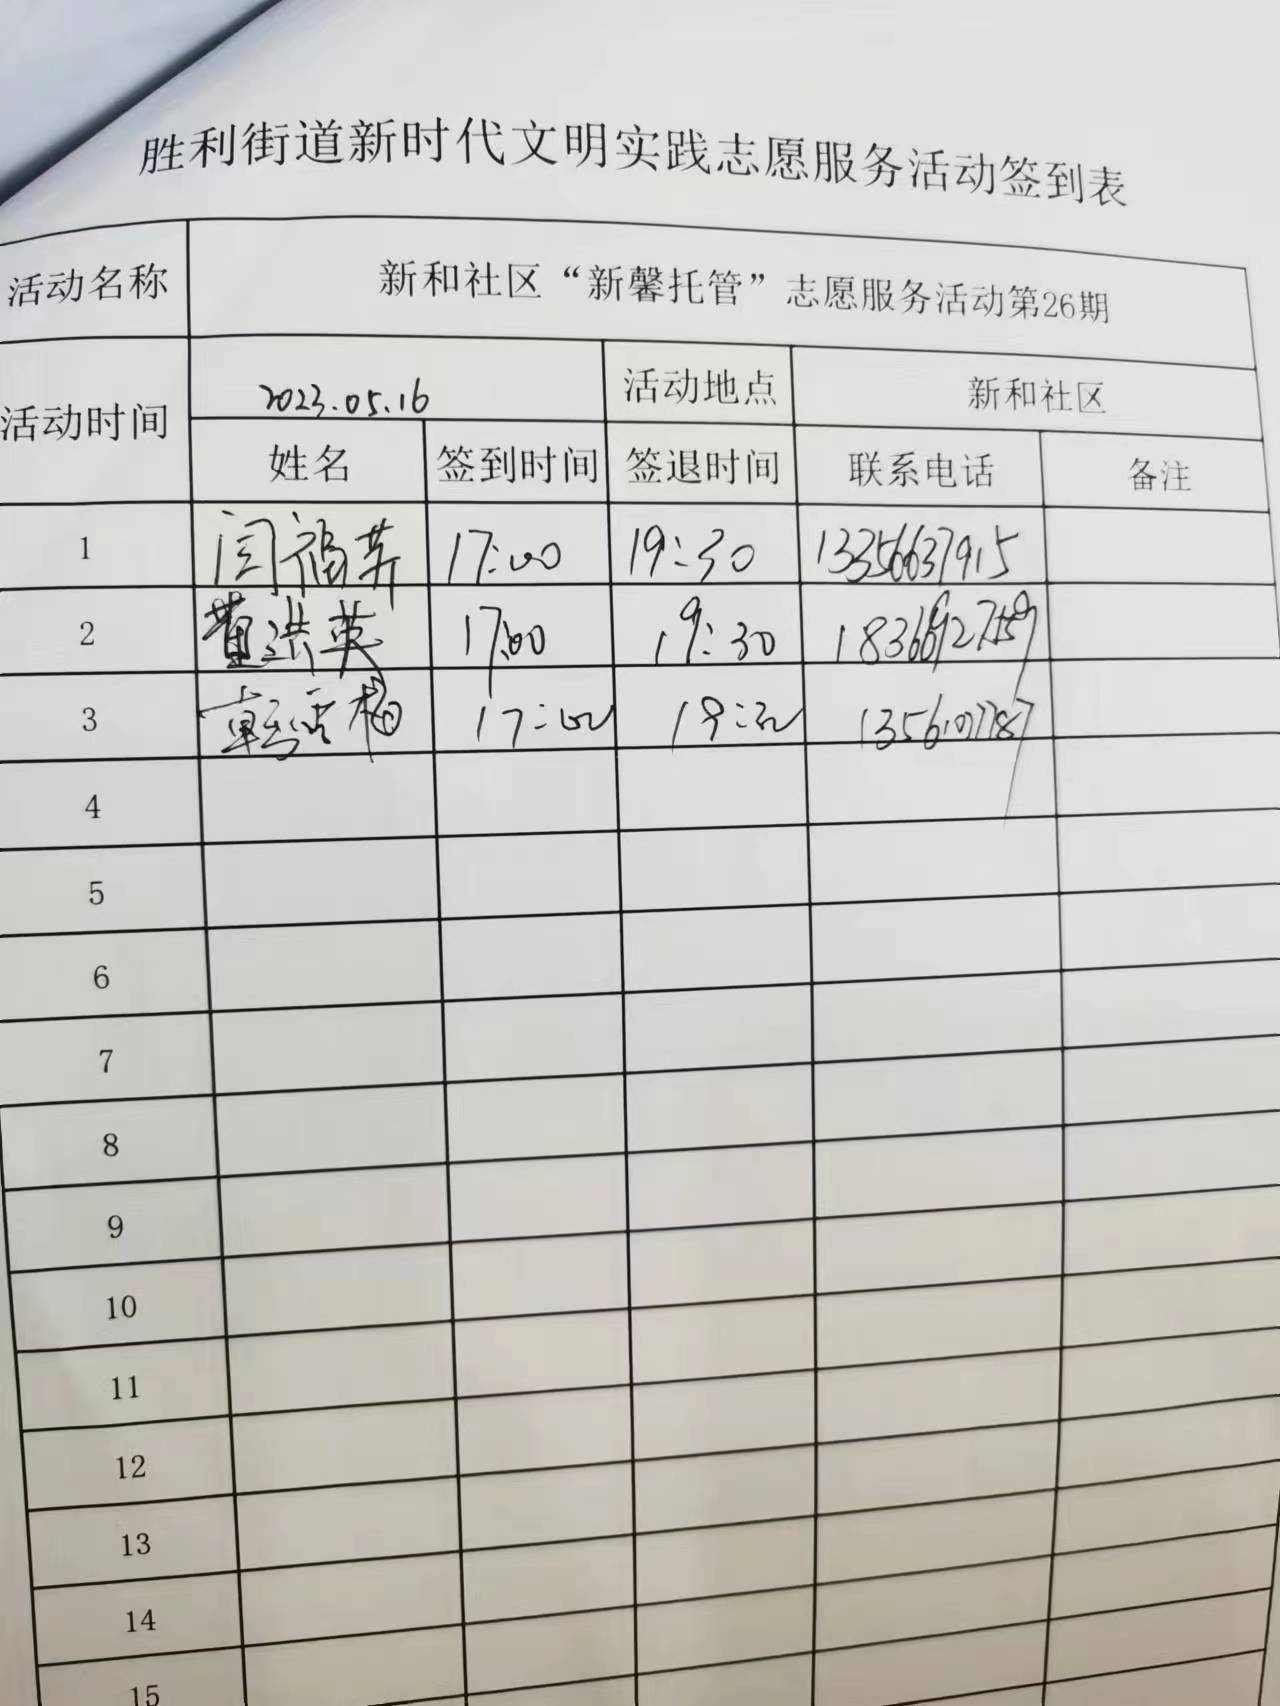 胜利街道新时代文明实践志愿服务活动签到表
活动名称 新和社区“新馨托管”志愿服务活动第26期
活动时间 2023.05.16 活动地点 新和社区
姓名 签到时间 签退时间 联系电话 备注
1 闫福英 17:00 19:30 13356637915
2 董洪英 17:00 19:30
3 韩雪梅 17:00 19:30
4
5
6
7
8
9
10
11
12
13
14
15